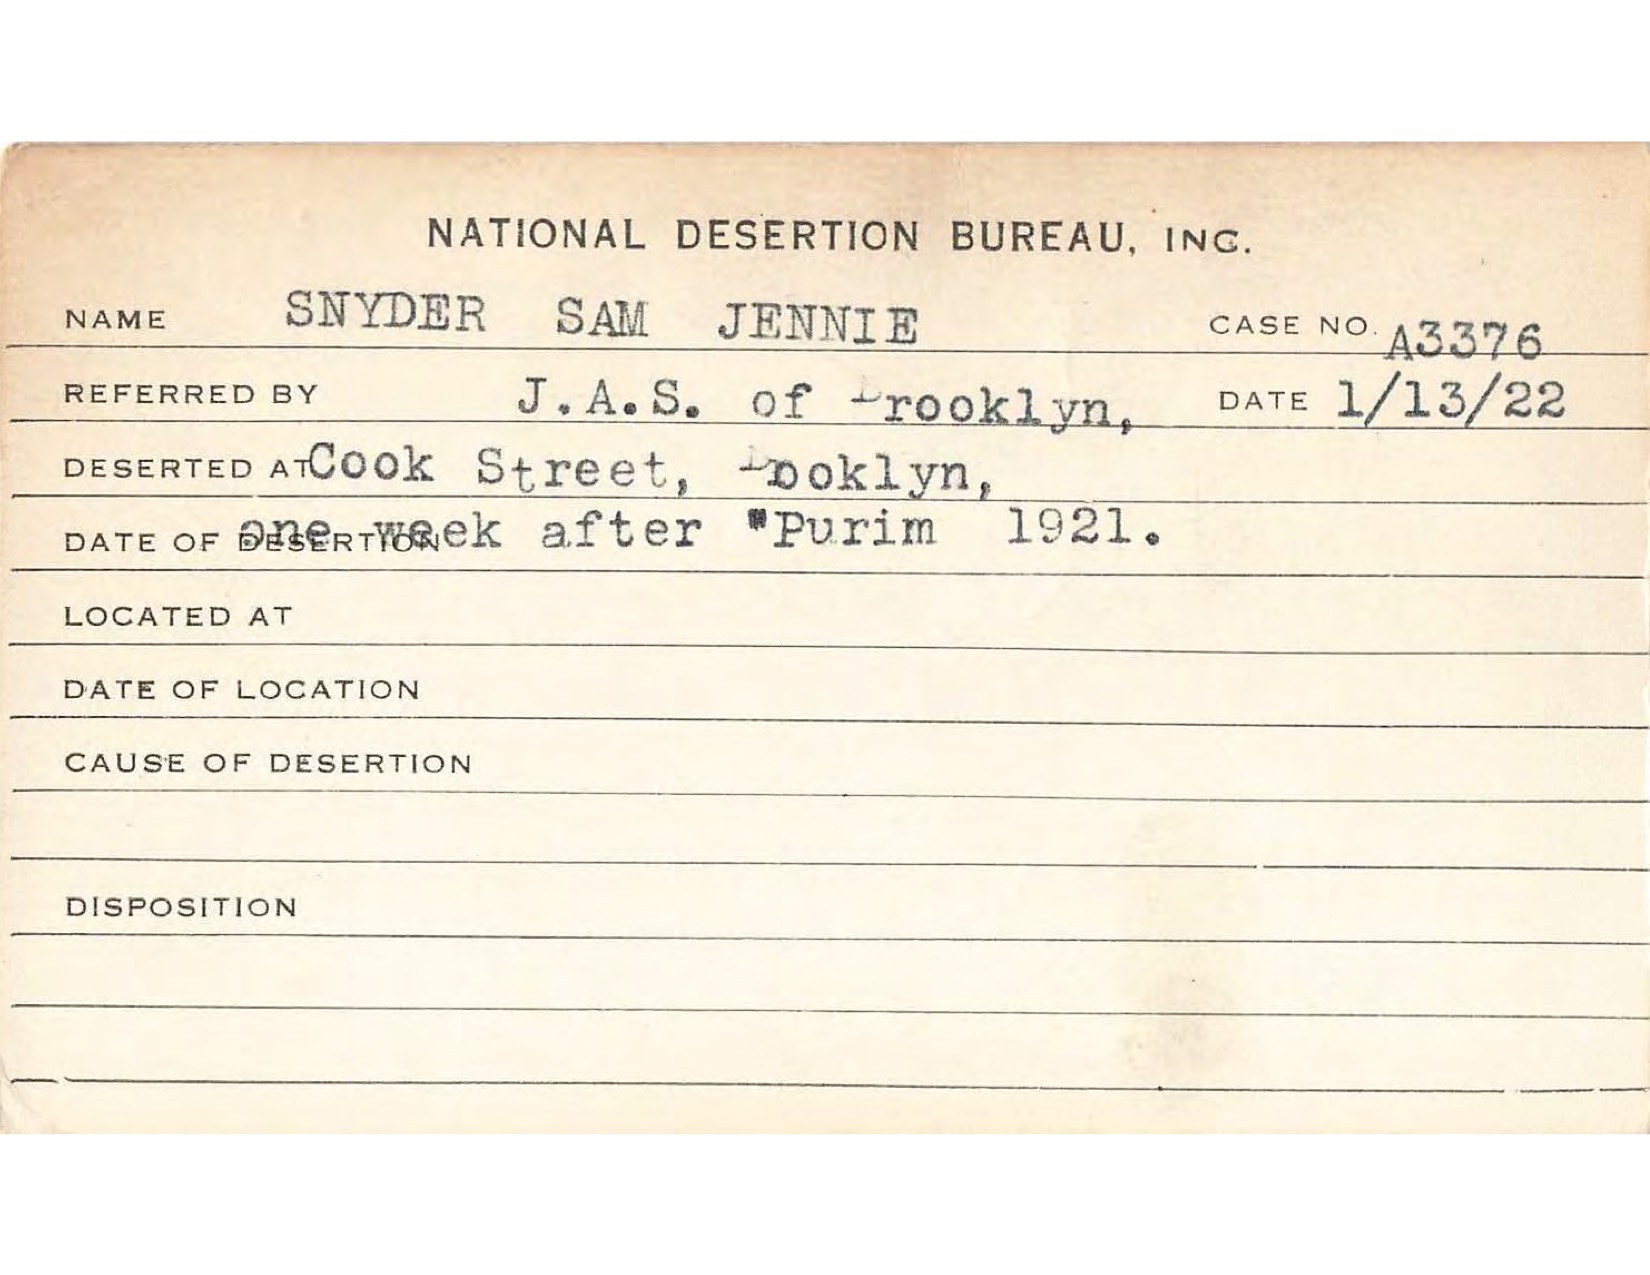 NATIONAL DESERTION BUREAU, INC.
NAME SNYDER SAM JENNIE CASE NO. A3376
REFERRED BY J.A.S. of Brooklyn, DATE 1/13/22
DESERTED AT Cook Street, Booklyn,
DATE OF DESERTION one week after "Purim 1921.
LOCATED AT
DATE OF LOCATION
CAUSE OF DESERTION
DISPOSITION